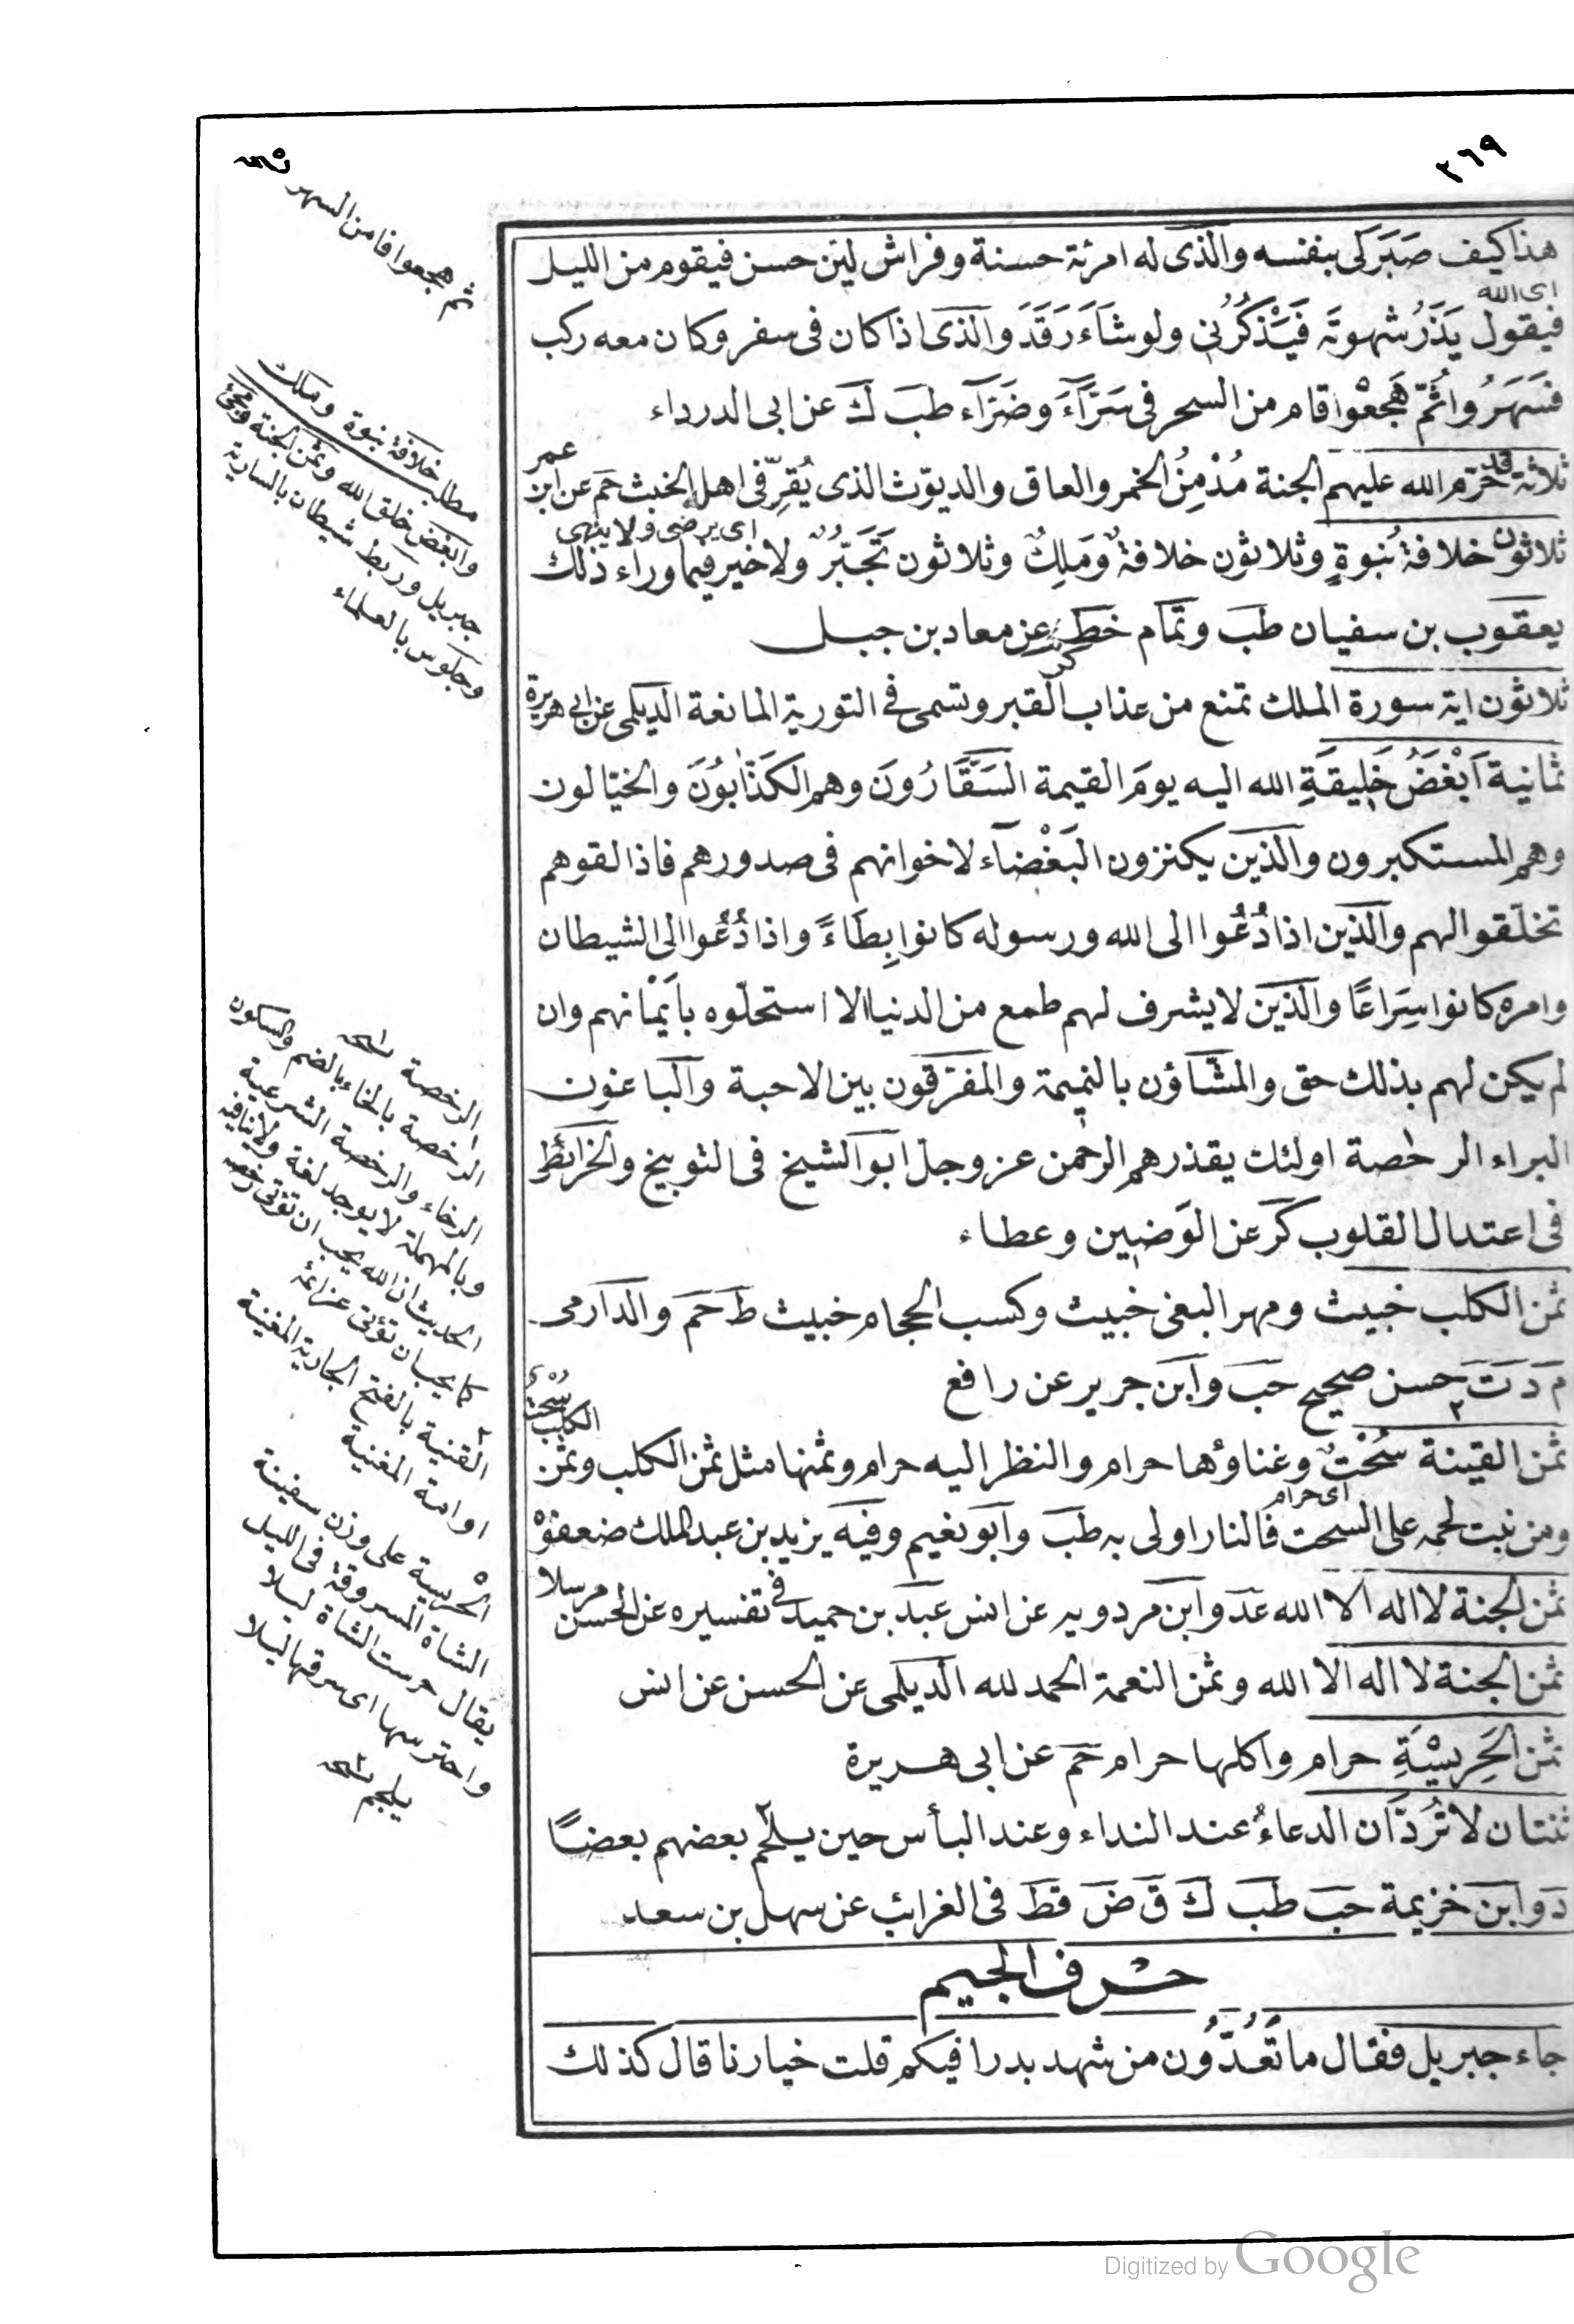 ٢٦٩
هذا كيف صَبَرَ لى بنفسه والّذى له امرئة حسنة وفراش ليّن حسن فيقوم من الليل
اى الله
فيقول يَذَرُ شهوتَه فَيَذكُرُنى ولو شَاءَ رَقَدَ والّذى اذا كان فى سفر وكان معه ركب
فسَهَرُوا ثُمّ هَجَعُوا قام من السحر فى سَرَّاءَ وضَرّاء طب ك عن ابى الدرداء
ثلاثة قد حرّم الله عليهم الجنة مُدْمِنُ الخمر والعاق والديّوث الذى يُقِرّ فى اهله الخبث حم عن ابن عمر
اى يرضى ولا ينهى
ثلاثون خلافة نُبوةٍ وثلاثون خلافة ومَلِكٌ وثلاثون تَجَبّرٌ ولا خير فيما وراء ذلك
يعقوب بن سفيان طب وتمّام خط كر عن معاد بن جبل
ثلاثون اية سورة الملك تمنع من عذاب القبر وتسمى فى التورية المانعة الديلمى عن ابى هريرة
ثمانية اَبْغَضُ خَلِيقَةِ الله اليه يومَ القيمة السَّقَّارُونَ وهم الكَذّابُونَ والخيّالون
وهم المستكبرون والّذين يكنزون البَغْضَاء لاخوانهم فى صدورهم فاذا لقوهم
تخلّقوا لهم والّذين اذا دُعُوا الى الله ورسوله كانوا بِطَاءً واذا دُعُوا الى الشيطان
وامره كانوا سِرَاعًا والّذين لا يشرف لهم طمع من الدنيا الا استحلّوه بأَيْمَانهم وان
لم يكن لهم بذلك حق والمشّاؤن بالنميمة والمفرّقون بين الاحبة والباغون
البراء الرخصة اولئك يقذرهم الرحمن عز وجل ابو الشيخ فى التوبيخ والخرائط
فى اعتدال القلوب كر عن الوَضِين وعطاء
ثمن الكلب خبيث ومهر البغى خبيث وكسب الحجام خبيث ط حم والدارمى
م د ت حسن صحيح حب وابن جرير عن رافع
ثمن القينة سُحْتٌ وغناؤها حرام والنظر اليه حرام وثمنها مثل ثمن الكلب وثمن الكلب سُحْتٌ
اى حرام
ومن نبت لحمه على السحت فالنار اولى به طب وابو نعيم وفيه يزيد بن عبد الملك ضعفوْه
ثمن الجنة لا اله الا الله عد وابن مردويه عن انس عبد بن حميد فى تفسيره عن الحسن مرسلا
ثمن الجنة لا اله الا الله وثمن النعمة الحمد لله الديلمى عن الحسن عن انس
ثمن الحَرِيسَةِ حرام واكلها حرام حم عن ابى هريرة
ثنتان لا تُرَدّان الدعاءُ عند النداء وعند البأس حين يلحم بعضهم بعضًا
د وابن خزيمة حب طب ك ق ض قط فى الغرائب عن سهل بن سعد
حرف الجيم
جاء جبريل فقال ما تَعُدُّون من شهد بدرا فيكم قلت خيارنا قال كذلك
ثم هجعوا فا من السهر
مطلب خلافة نبوة وملك
وابغض خلق الله وثمن الجنة
جبريل وربط شيطان بالسارية
وجلوس بالعلماء
الرخصة
الرخصة بالخاء بالضم والسكون
الرخاء والرخصة الشرعية
وبالمهملة لا يوجد لغة ولا ينافيه
الحديث ان الله يحب ان تؤتى رخصه
كما يحب ان تؤتى عزائمه
القنية بالفتح الجارية المغنية
او امة المغنية
الحريسة على وزن سفينة
الشاة المسروقة فى الليل
يقال حرست الشاة ليلا
واحترسها اى سرقها ليلا
يلجم
Digitized by Google